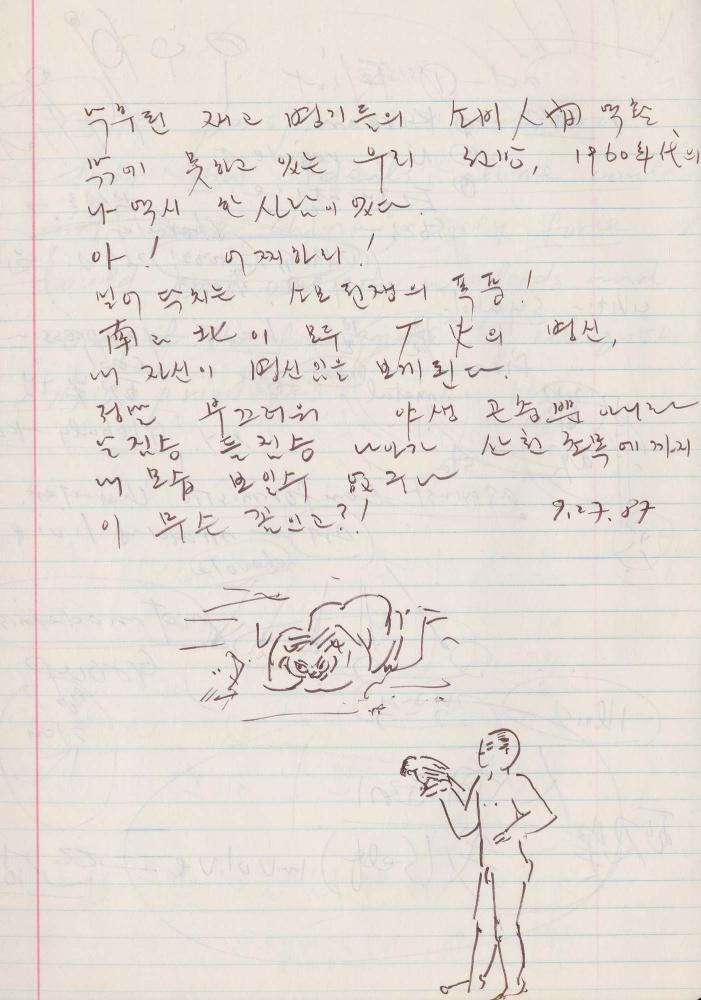 재고 병기들의 소비 人間 역할
밖에 못하고 있는 우리 1960年代의
나 역시 한 사람이 었다.
아! 어찌하리!
밀어 닥치는 소모전쟁의 폭풍!
南과 北이 모두 의 병신,
내 자신이 병신임을 보게된다.
정말 부끄러워 야생 곤충뿐 아니라
날짐승 들짐승 나아가 산천초목에 까지
내 모습 보일수 없구나
이 무슨 꼴인고?! 9.27.87